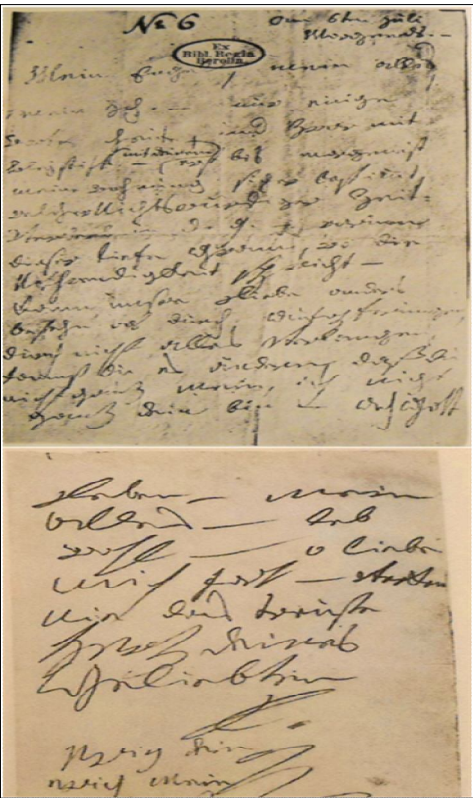 No 6
am 6ten Juli
Morgends. –
Ex
Bibl. Regia
Berolin.
Mein Engel, mein alles
mein Ich. – nur einige
Worte heute, und zwar mit
Bleystift (mit deinem) erst bis morgen ist
meine wohnung sicher bestimmt,
welcher Nichtswürdiger Zeit-
d. g. – warum
dieser tiefe Gram, wo die
Nothwendigkeit spricht –
Kann unsre Liebe anders
bestehn als durch Aufopferungen,
durch nicht alles verlangen,
kannst du es ändern, daß du
nicht ganz mein, ich nicht
ganz dein bin – Ach Gott
Leben – mein
alles – leb
wohl – o liebe
mich fort –
nie das treuste
Herz deines
Geliebten
L.
ewig dein
ewig mein